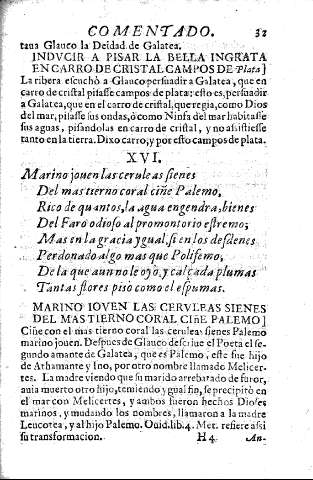 COMENTADO. 32
taua Glauco la Deidad de Galatea.
INDVCIR A PISAR LA BELLA INGRATA
EN CARRO DE CRISTAL CAMPOS DE Plata]
La ribera escuchò a Glauco persuadir a Galatea, que en
carro de cristal pisasse campos de plata: esto es, persuadir
a Galatea, que en el carro de cristal, que regia, como Dios
del mar, pisasse sus ondas, ò como Ninfa del mar habitasse
sus aguas, pisandolas en carro de cristal, y no assistiesse
tanto en la tierra. Dixo carro, y por esto campos de plata.
XVI.
Marino jouen las ceruleas sienes
Del mas tierno coral ciñe Palemo,
Rico de quantos, la agua engendra, bienes
Del Faro odioso al promontorio estremo;
Mas en la gracia ygual, si en los desdenes
Perdonado algo mas que Polifemo,
De la que aun no le oyò, y calçada plumas
Tantas flores pisò como el espumas.
MARINO IOVEN LAS CERVLEAS SIENES
DEL MAS TIERNO CORAL CIÑE PALEMO]
Ciñe con el mas tierno coral las ceruleas sienes Palemo
marino jouen. Despues de Glauco descriue el Poeta el se-
gundo amante de Galatea, que es Palemo, este fue hijo
de Athamante y Ino, por otro nombre llamado Melicer-
tes. La madre viendo que su marido arrebatado de furor,
auia muerto otro hijo, temiendo ygual fin, se precipitò en
el mar con Melicertes, y ambos fueron hechos Dioses
marinos, y mudando los nombres, llamaron a la madre
Leucotea, y al hijo Palemo. Ouid. lib. 4. Met. refiere assi
su transformacion. H4 An-